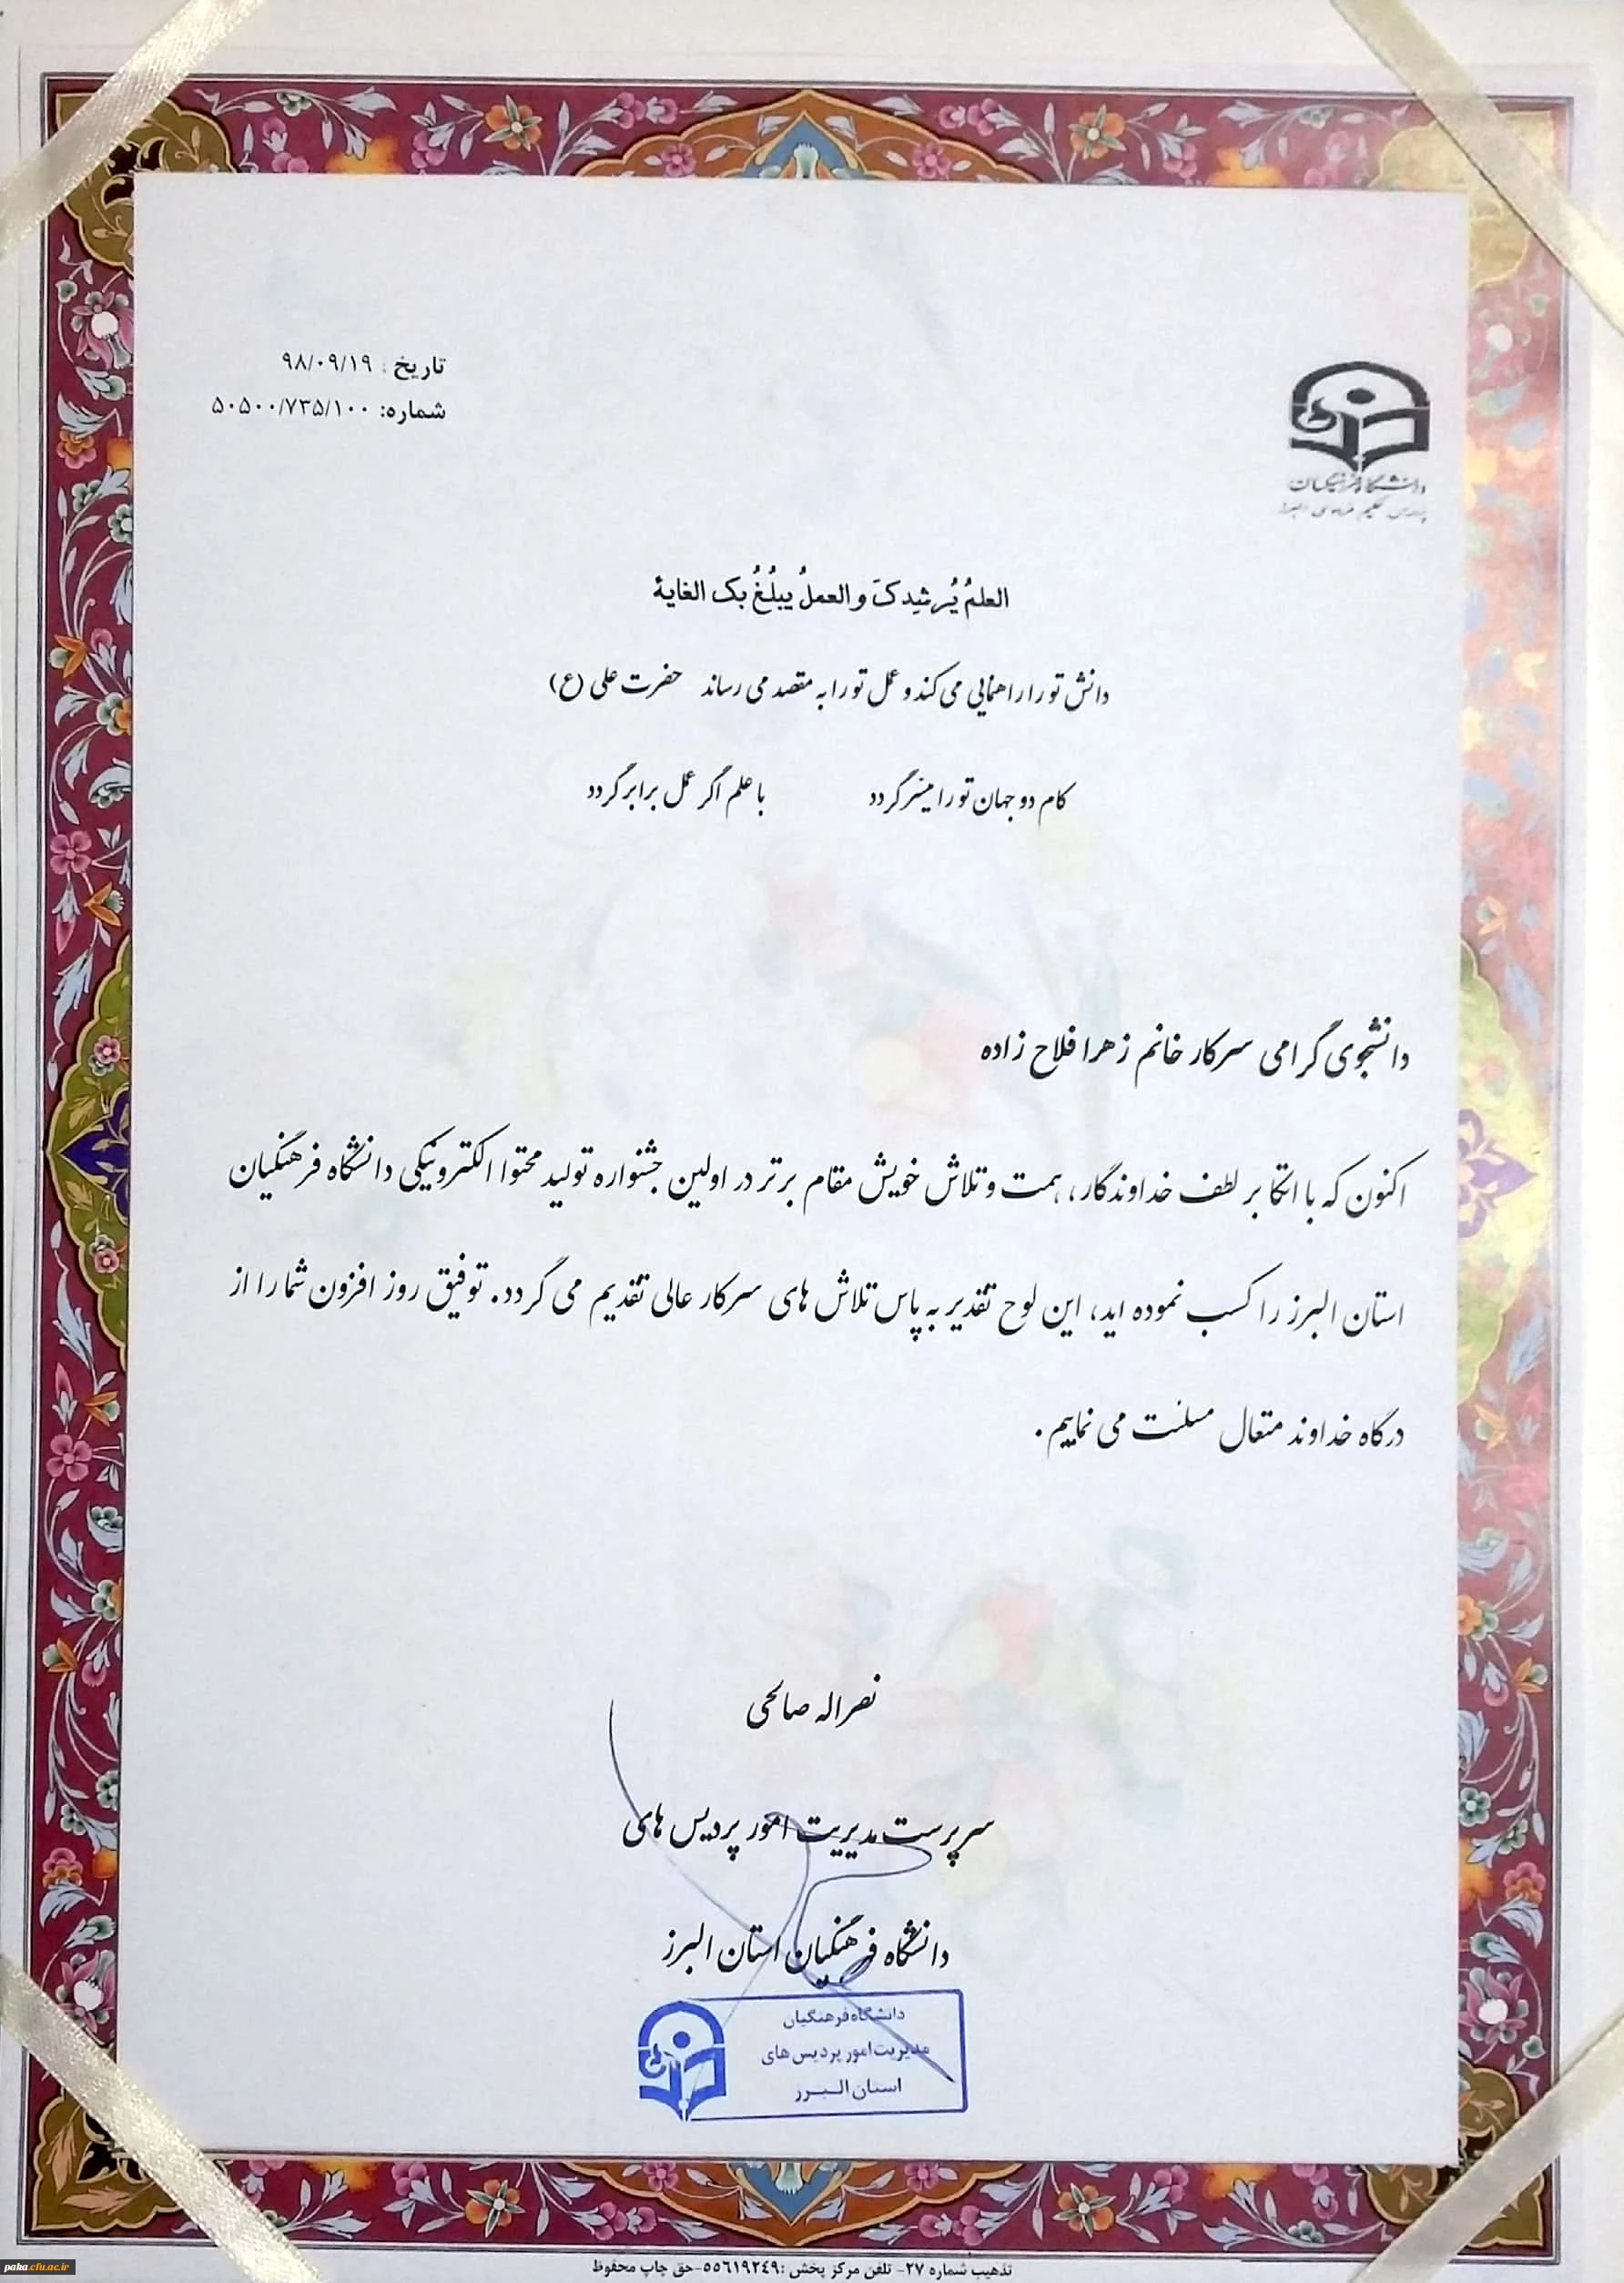 تاریخ : ۹۸/۰۹/۱۹
شماره: ۵۰۵۰۰/۷۳۵/۱۰۰
دانشگاه فرهنگیان
پردیس حکیم فردوسی البرز
العلمُ یُرشیدکَ و العملُ یبلُغُ بک الغایة
دانش تو را راهنمایی می کند و عمل تو را به مقصد می رساند حضرت علی (ع)
کام دو جهان تو را میسّر گردد با علم اگر عمل برابر گردد
دانشجوی گرامی سرکار خانم زهرا فلاح زاده
اکنون که با اتکا بر لطف خداوندگار، همت و تلاش خویش مقام برتر در اولین جشنواره تولید محتوا الکترونیکی دانشگاه فرهنگیان
استان البرز را کسب نموده اید، این لوح تقدیر به پاس تلاش های سرکار عالی تقدیم می گردد. توفیق روز افزون شما را از
درگاه خداوند متعال مسلئت می نماییم.
نصراله صالحی
سرپرست مدیریت امور پردیس های
دانشگاه فرهنگیان استان البرز
دانشگاه فرهنگیان
مدیریت امور پردیس های
استان البرز
تذهیب شماره ۲۷- تلفن مرکز پخش :٥٥٦١٩٢٤٩-حق چاپ محفوظ
paka.cfu.ac.ir